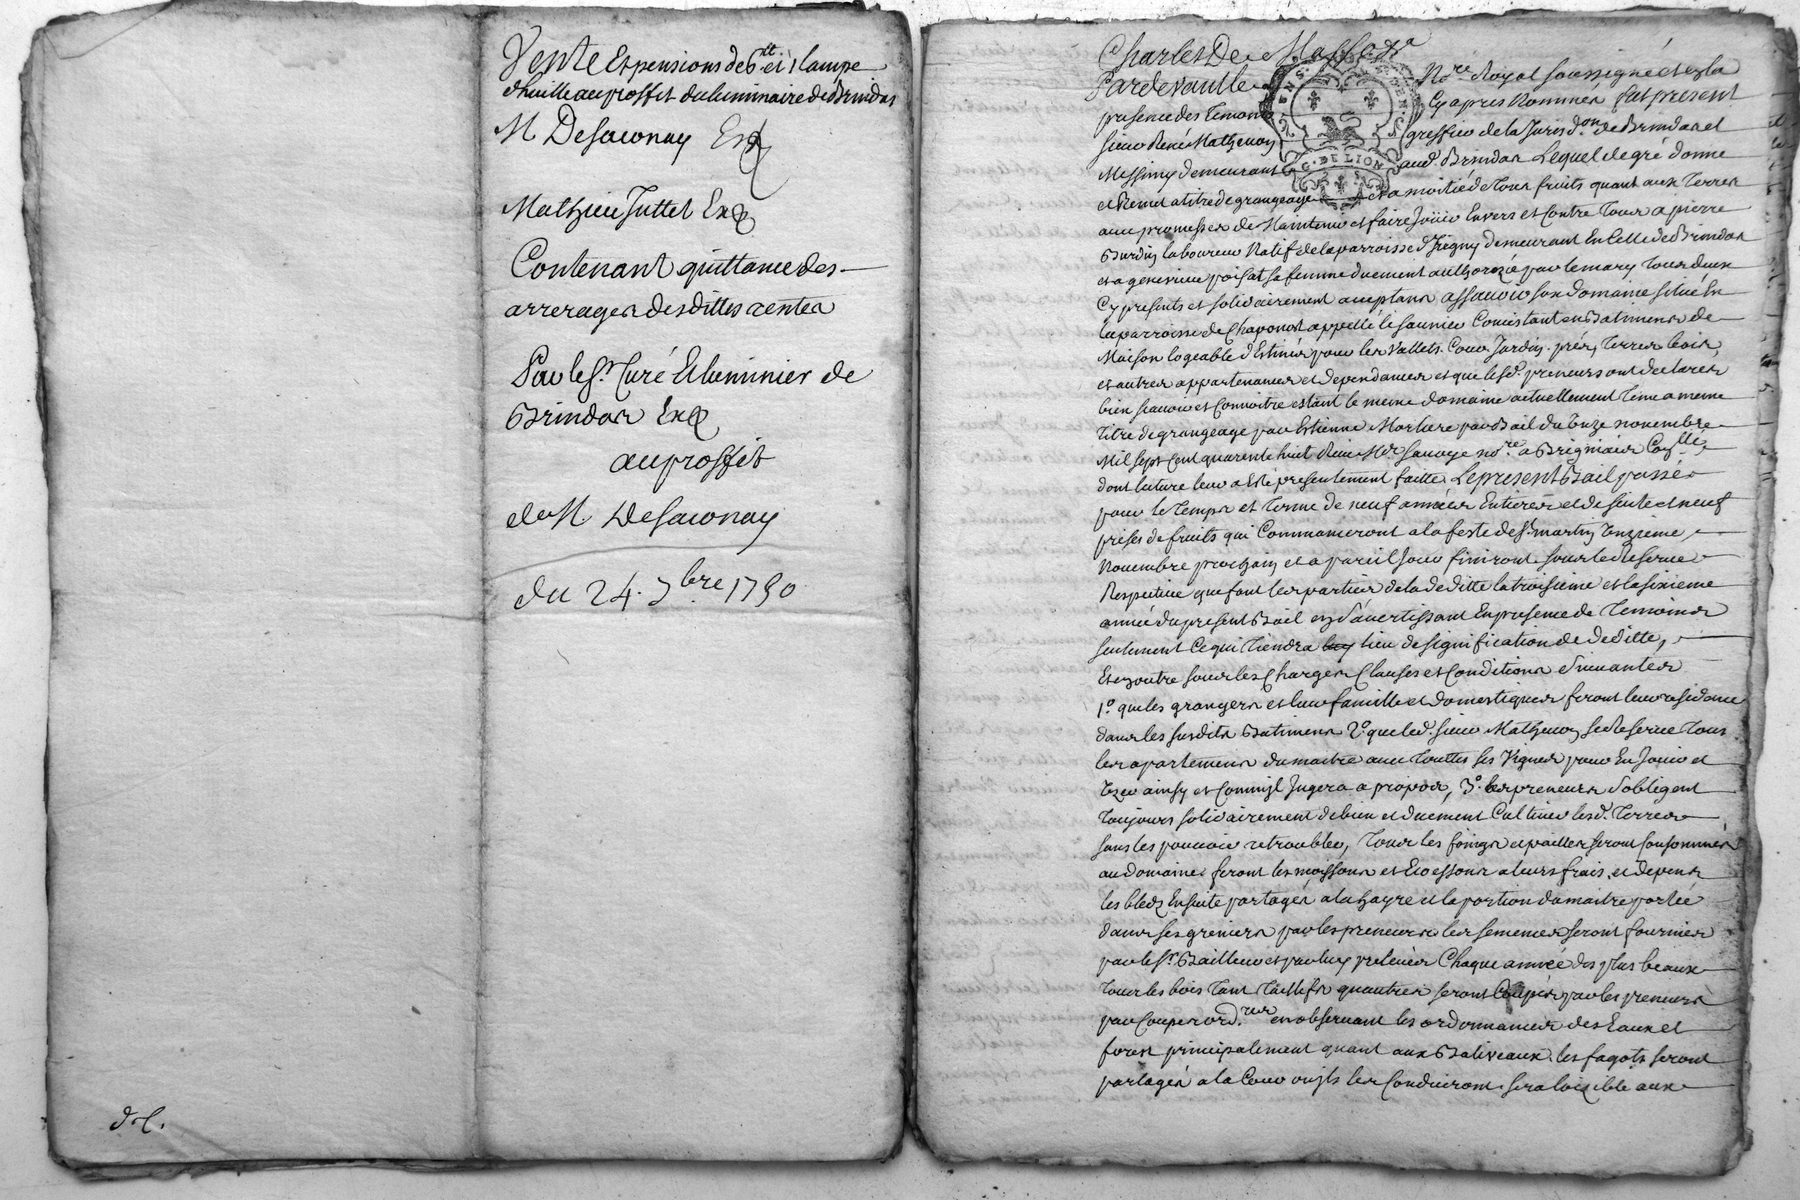 Vente et pensions de 6 tt et 1 lampe
d'huille au proffit du luminaire de Brindas
M Desaunay Exp
Mathieu Juttet Exp
Contenant quittance des
arrerages desdittes rentes
Par le Sr. Curé et luminier de
Brindas Exp
au proffit
de M Desaunay
du 24. 7bre 1750
d. C.
Charles De
Pardevant le No.re Royal soussigné et en la
presence des temoins Cy apres Nommés fut present
sieur René Mathevon greffier de la Jurisd.on de Brindas et
Messimy demeurant aud. Brindas Lequel de gré donne
et Remet a titre de grangeage et a moitié de tous fruits quant aux terres
avec promesses de Maintenir et faire Jouir Envers et Contre tous a pierre
Burdin laboureur Natif de la parroisse d'Irigny demeurant En Celle de Brindas
et a genevieve poisat sa femme duement authorozée par le mary tous deux
Cy presents et solidairement acceptans assavoir son domaine situé En
la parroisse de Chaponost appellé le saunier Consistant en Batimens de
Maison logeable d'Estinés pour les Vallets. Cour. Jardin. prés, terres bois,
et autres appartenances et dependances et que lesd. preneurs ont declarés
bien scavoir et Connoitre estant le meme domaine actuellement tenu a meme
titre de grangeage par Estienne Morlere par Bail du Onze novembre
Mil sept Cent quarente huit Reçu Me. Savoye no.re a Brignais
dont lecture leur a Esté presentement faitte. Le present Bail passé
pour le temps et terme de neuf années Entieres et de suite et neuf
prises de fruits qui Commanceront a la feste de St. martin Onzieme
Novembre prochain et a pareil Jour finiront sous la Reserve
Respective que font les parties de la de ditte la troisieme et la sixieme
année du present Bail en s'avertissant En presence de temoins
seulement Ce qui tiendra lieu de signification de de ditte,
Et en outre sous les Charges Clauses et Conditions suivantes
1.° que les grangers et leur famille et domestiques feront leur residance
dans les susdits Batimens 2.° que led. sieur Mathevon se Reserve tous
les apartemens du maitre avec touttes ses Vignes pour En Jouir et
User ainsy et Comm'jl Jugera a propos, 3.° les preneurs s'obligent
toujours solidairement de bien et duement Cultiver lesd. terres
sans les pouvoir retroubler, tous les foings et pailles seront Consommés
au domaine. feront les moissons et Ecossons a leurs frais et depens
les bleds Ensuite partagés a la hayre et la portion du maitre portée
dans ses greniers par les preneurs les semences seront fournies
par le Sr. Bailleur et par luy prelevées Chaque année des plus beaux
tous les bois tant taillifs qu'autres seront Coupés par les preneurs
par Coupes ord.res en observant les ordonnances des Eaux et
forest principalement quant aux Baliveaux. les fagots seront
partagés a la Cour ou jls les Conduiront. sera loizible aux
G. DE LION